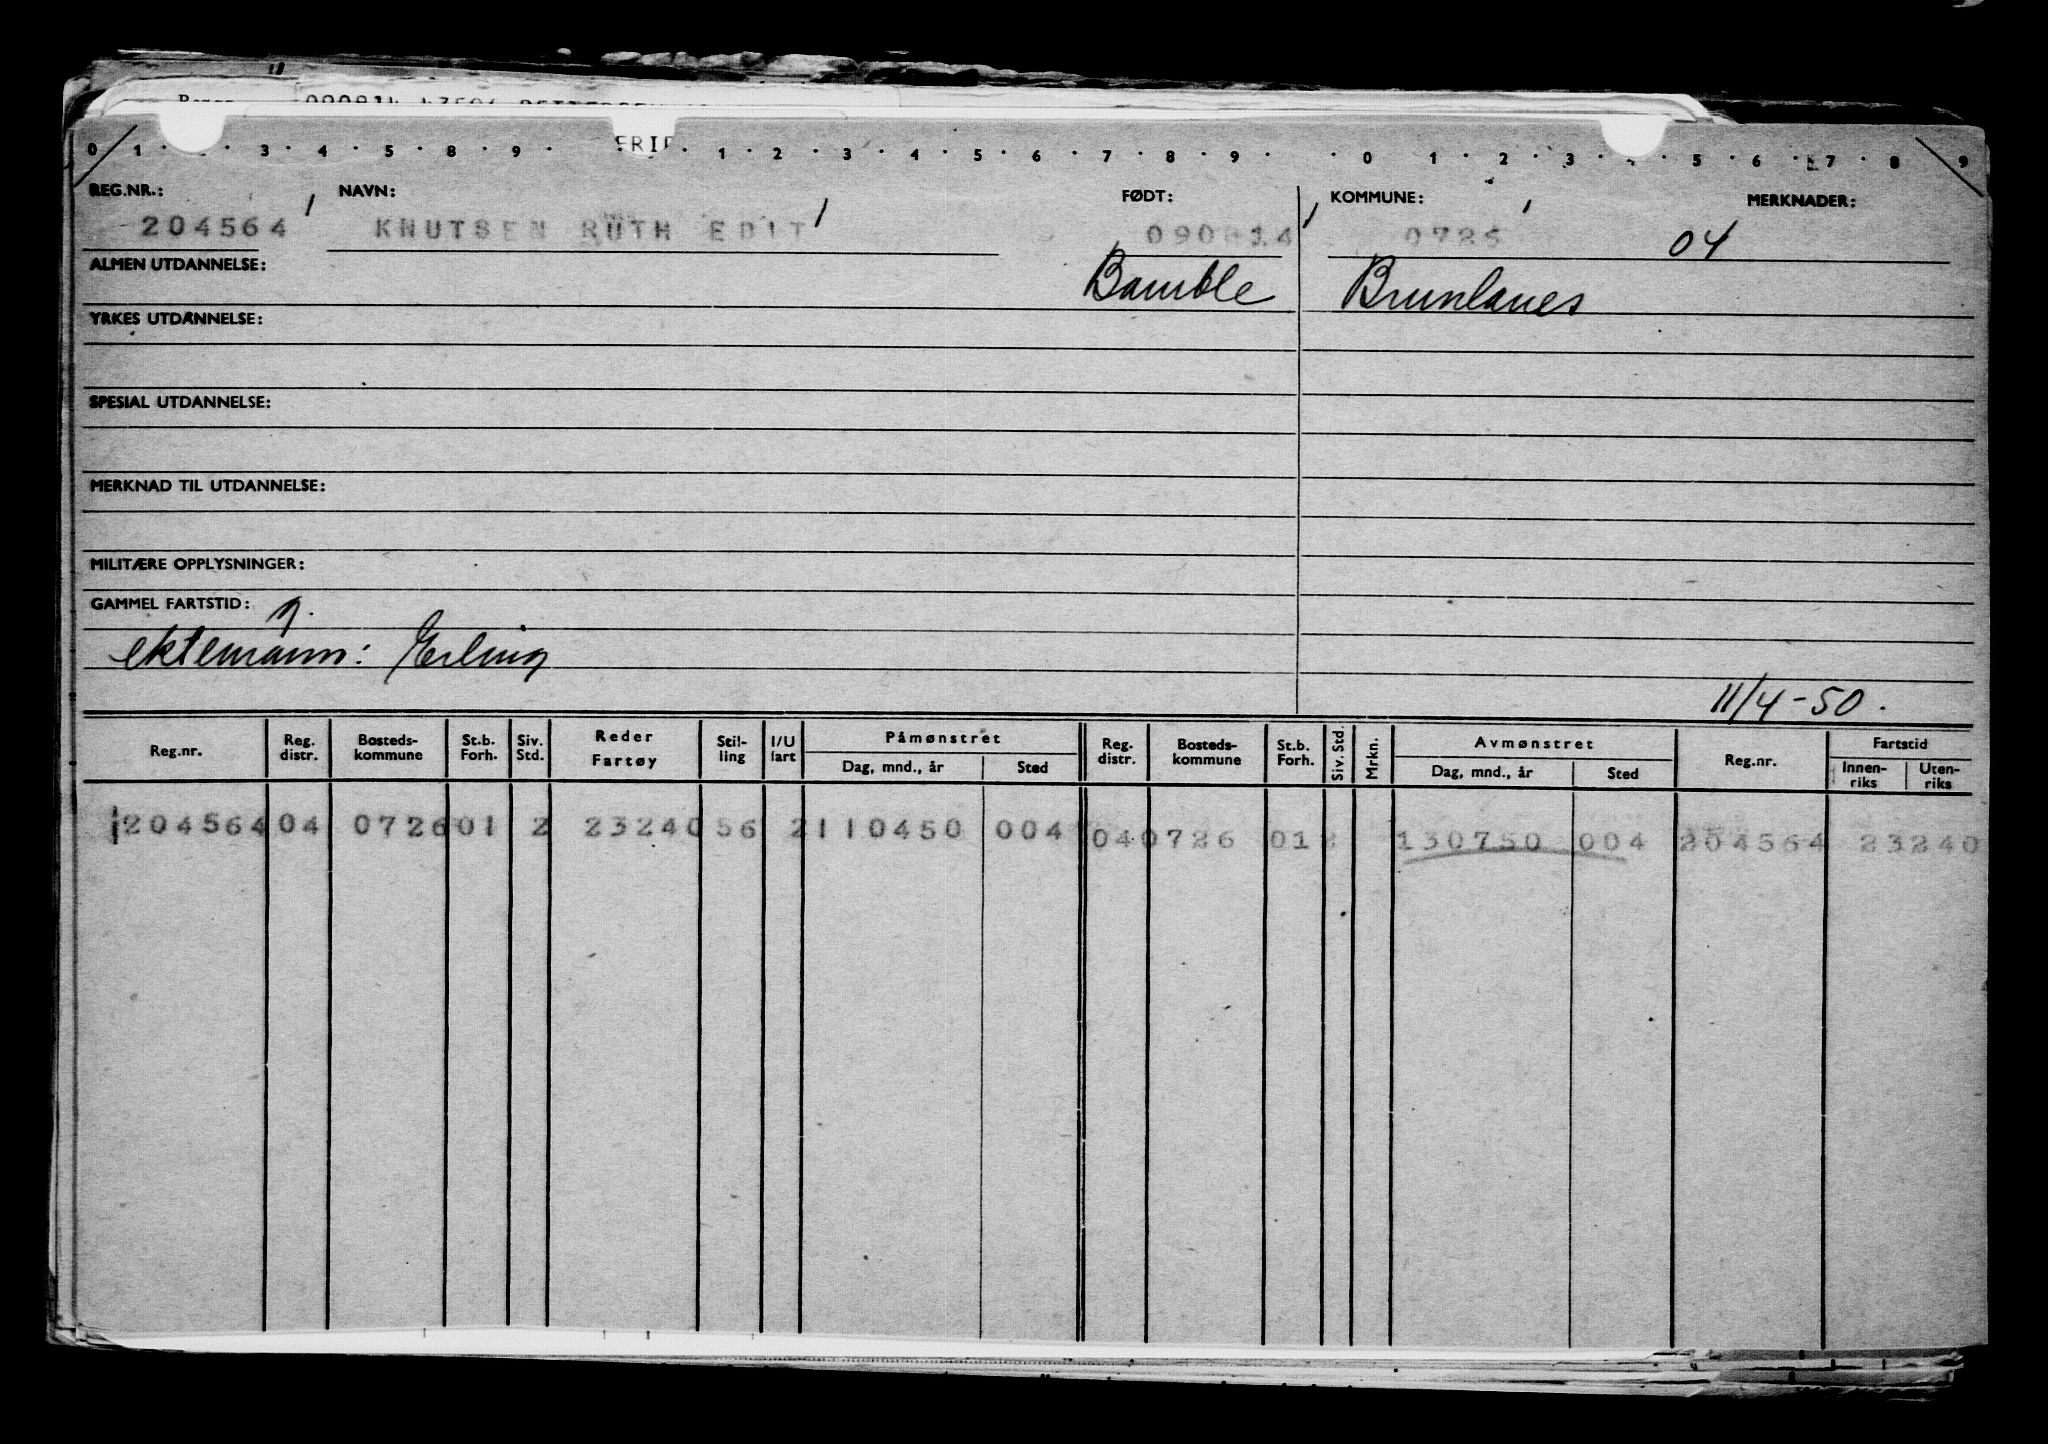 090814
ERI
0 1 3 4 5 8 9 1 2 3 4 5 6 7 8 9 0 1 2 3 5 6 7 8 9
REG.NR.: NAVN: FØDT: KOMMUNE: MERKNADER:
204564 KNUTSEN RUTH EDIT 090814 0726 04
ALMEN UTDANNELSE: Bamble Brunlanes
YRKES UTDANNELSE:
SPESIAL UTDANNELSE:
MERKNAD TIL UTDANNELSE:
MILITÆRE OPPLYSNINGER:
GAMMEL FARTSTID:
ektemann: Erling
11/4-50.
Reg.nr. Reg. distr. Bosteds- kommune St.b. Forh. Siv. Std. Reder Fartøy Stil- ling I/U fart Påmønstret Dag, mnd., år Sted Reg. distr. Bosteds- kommune St.b. Forh. Siv. Std. Mrkn. Avmønstret Dag, mnd., år Sted Reg.nr. Fartstid Innen- riks Uten- riks
204564 04 0726 01 2 23240 56 2 110450 004 04 0726 01 2 130750 004 204564 23240